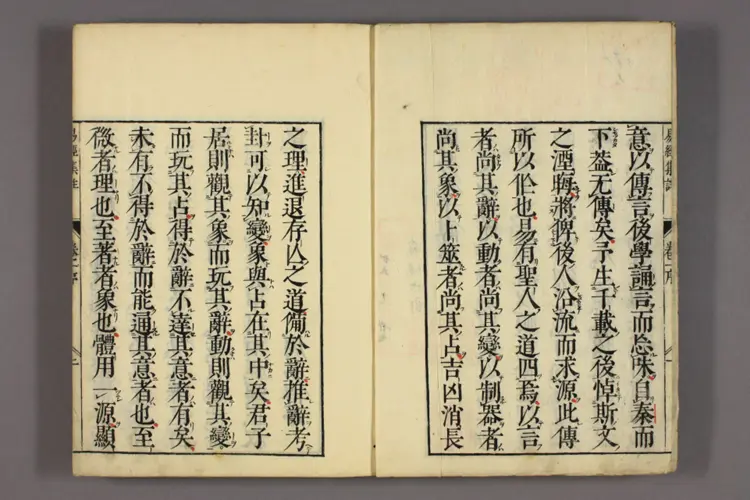 易經集註 卷之序 一
意以傳言後學誦言而忘味自秦而
下蓋无傳矣予生千載之後悼斯文
之湮晦將俾後人沿流而求源此傳
所以作也易有聖人之道四焉以言
者尚其辭以動者尚其變以制器者
尚其象以卜筮者尚其占吉凶消長
之理進退存亡之道備於辭推辭考
卦可以知變象與占在其中矣君子
居則觀其象而玩其辭動則觀其變
而玩其占得於辭不達其意者有矣
未有不得於辭而能通其意者也至
微者理也至著者象也體用一源顯
易經集註 卷之序 二